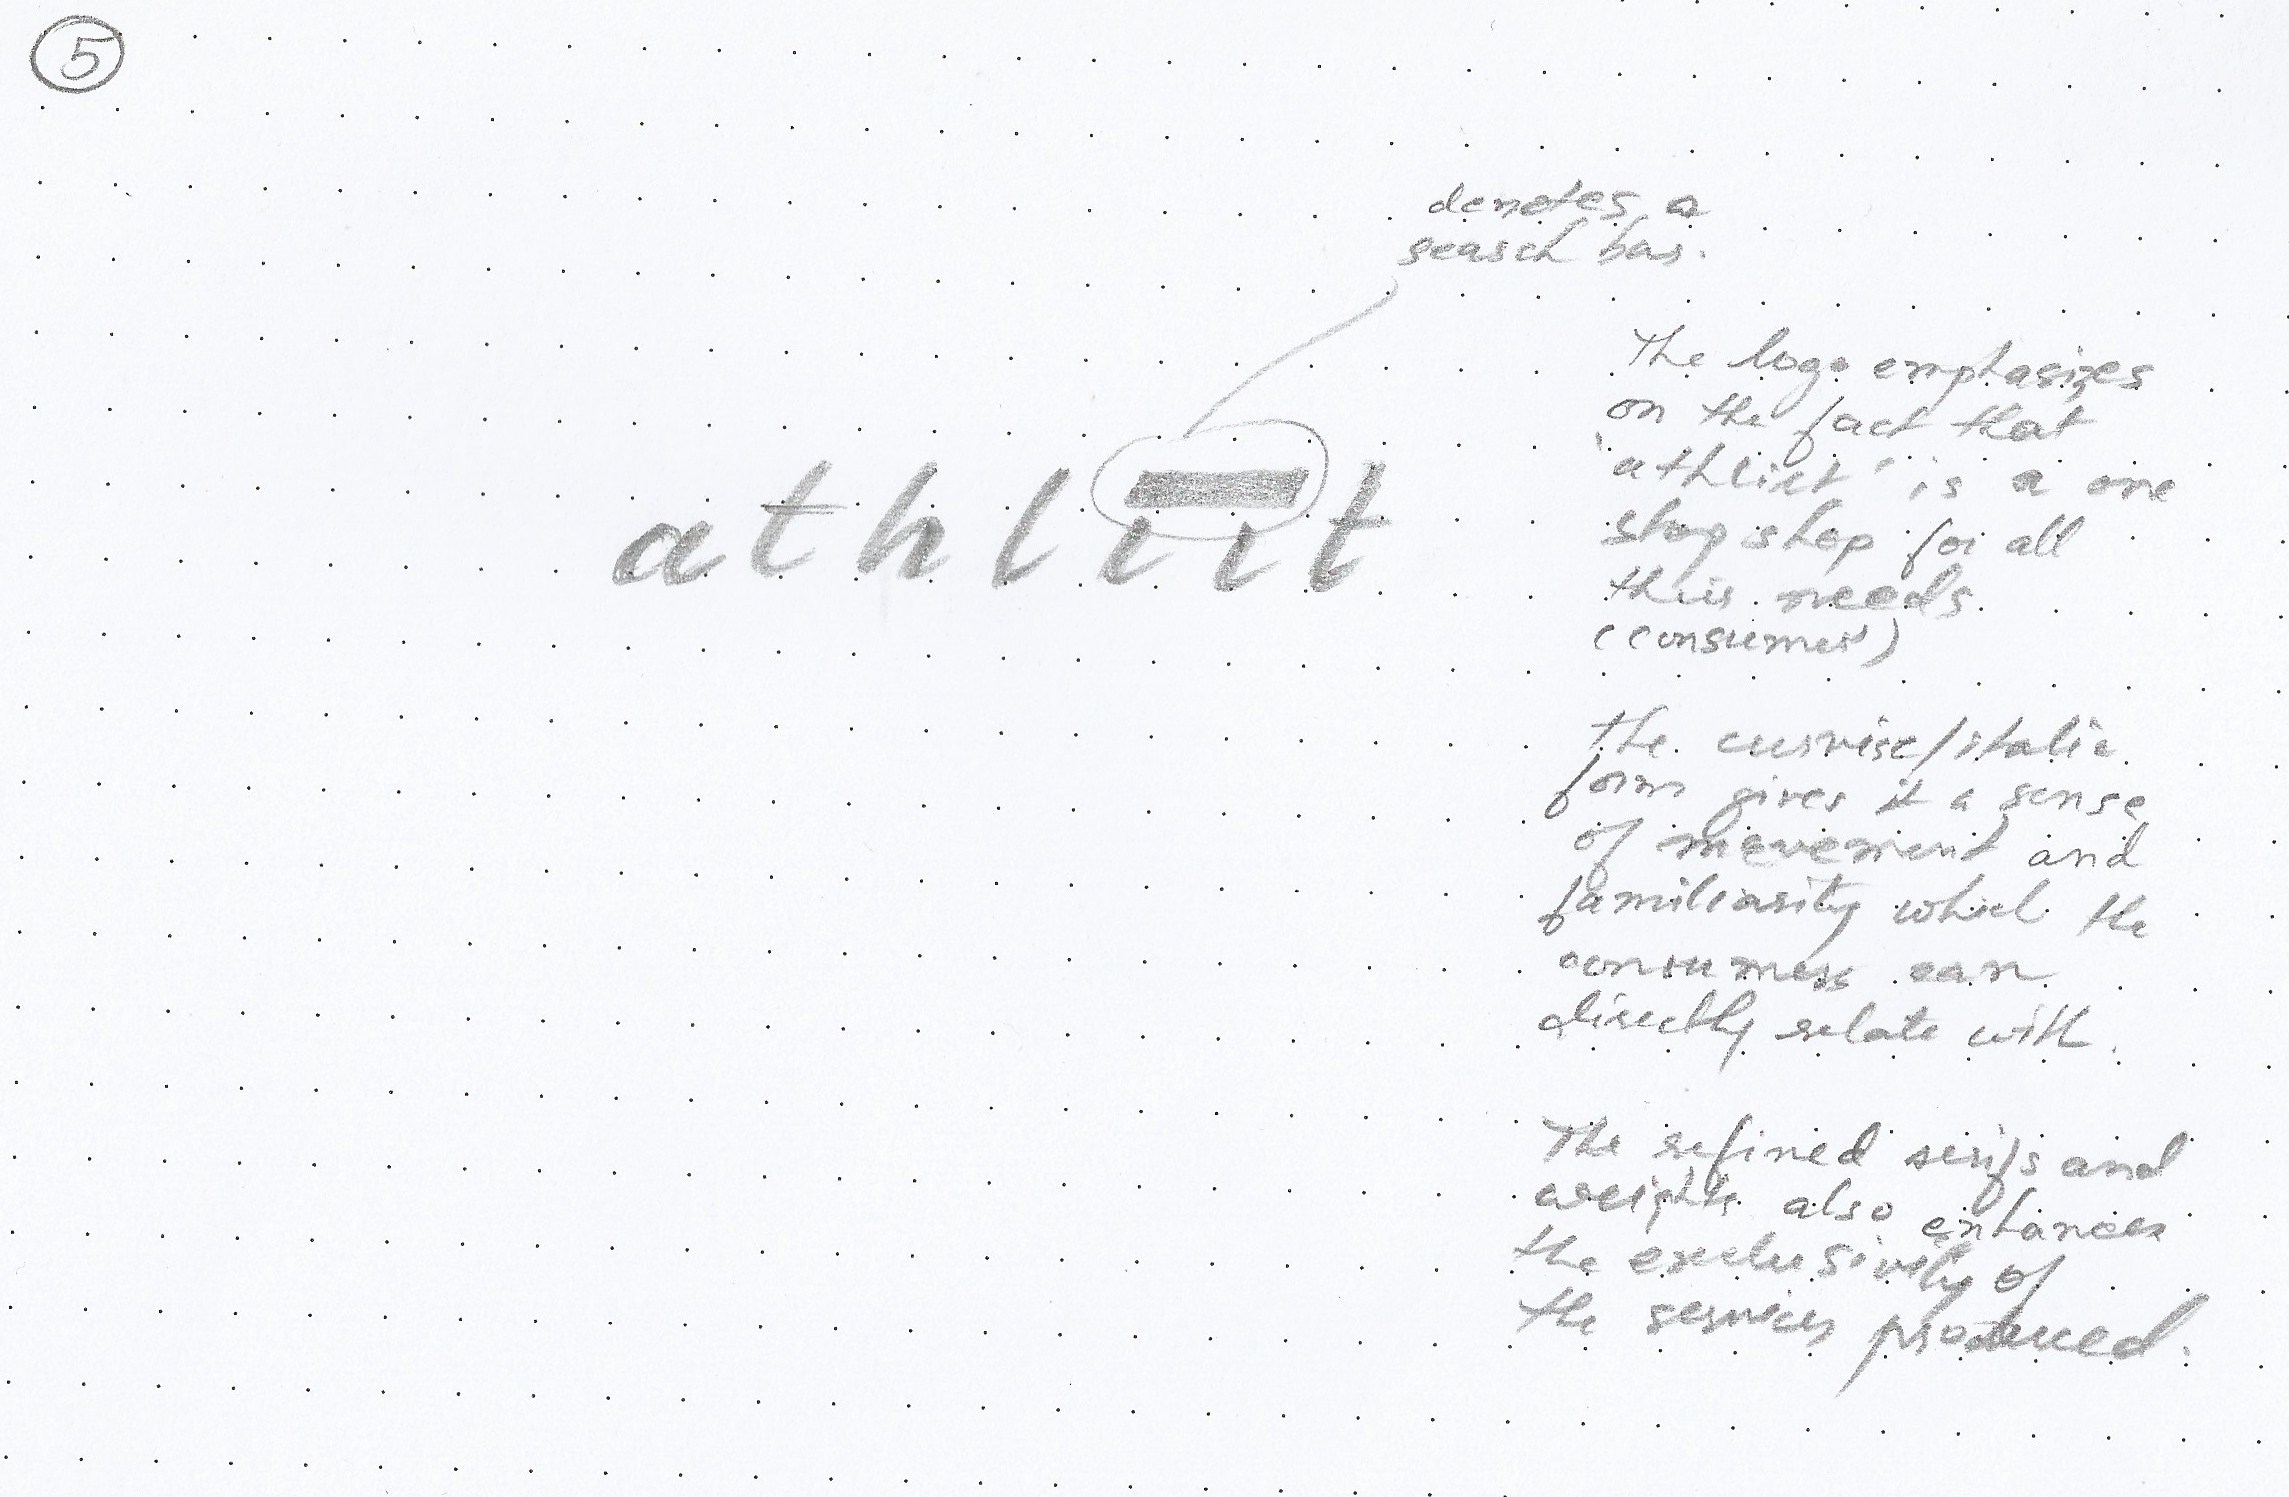 5
denotes a
search bar.
athlııt
The logo emphasizes
on the fact that
'athliit' is a one
stop shop for all
their needs.
(consumer)
The cursive/italic
form gives it a sense
of movement and
familiarity which the
consumers can
directly relate with.
The refined serifs and
weights also enhances
the exclusivity of
the services produced.